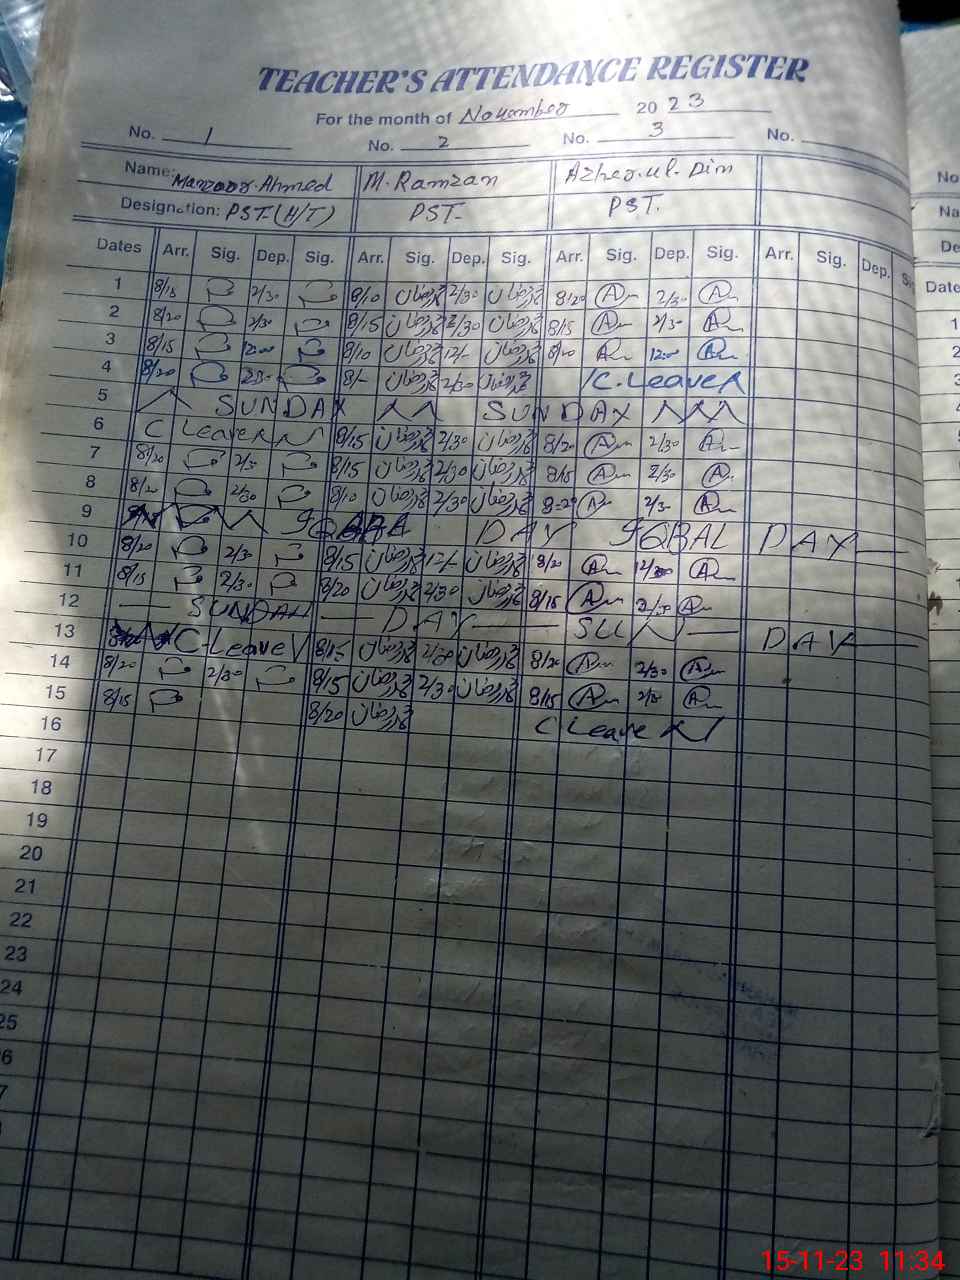 TEACHER'S ATTENDANCE REGISTER
For the month of November 2023
No. 1 No. 2 No. 3 No.
Name: Manzoor Ahmed M. Ramzan Azher.ul.Din
Designation: PST (H/T) PST PST.
Dates Arr. Sig. Dep. Sig. Arr. Sig. Dep. Sig. Arr. Sig. Dep. Sig. Arr. Sig. Dep. Si
1 8/15 2/30 8/10 محمد رمضان 2/30 محمد رمضان 8/20 A 2/30 A
2 8/20 2/30 8/15 محمد رمضان 2/30 محمد رمضان 8/15 A 2/30 A
3 8/15 12:00 8/10 محمد رمضان 12/- محمد رمضان 8/20 A 12:00 A
4 8/20 2:30 8/- محمد رمضان 2/30 محمد رمضان C.Leave
5 SUNDAY SUNDAY
6 C Leave 8/15 محمد رمضان 2/30 محمد رمضان 8/20 A 2/30 A
7 8/20 2/30 8/15 محمد رمضان 2/30 محمد رمضان 8/15 A 2/30 A
8 8/20 2/30 8/10 محمد رمضان 2/30 محمد رمضان 8:20 A 2/30 A
9 DAY IQBAL DAY
10 8/20 2/30 8/15 محمد رمضان 12/- محمد رمضان 8/20 A A
11 8/15 2/30 8/20 محمد رمضان 2/30 محمد رمضان 8/15 A 2/30 A
12 SUNDAY DAY SUN DAY
13 C-Leave 8/15 محمد رمضان 2/30 محمد رمضان 8/20 A 2/30 A
14 8/20 2/30 8/15 محمد رمضان 2/30 محمد رمضان 8/15 A 2/30 A
15 8/15 8/20 محمد رمضان C Leave
16
17
18
19
20
21
22
23
24
25
No
Na
De
Date
15-11-23 11:34